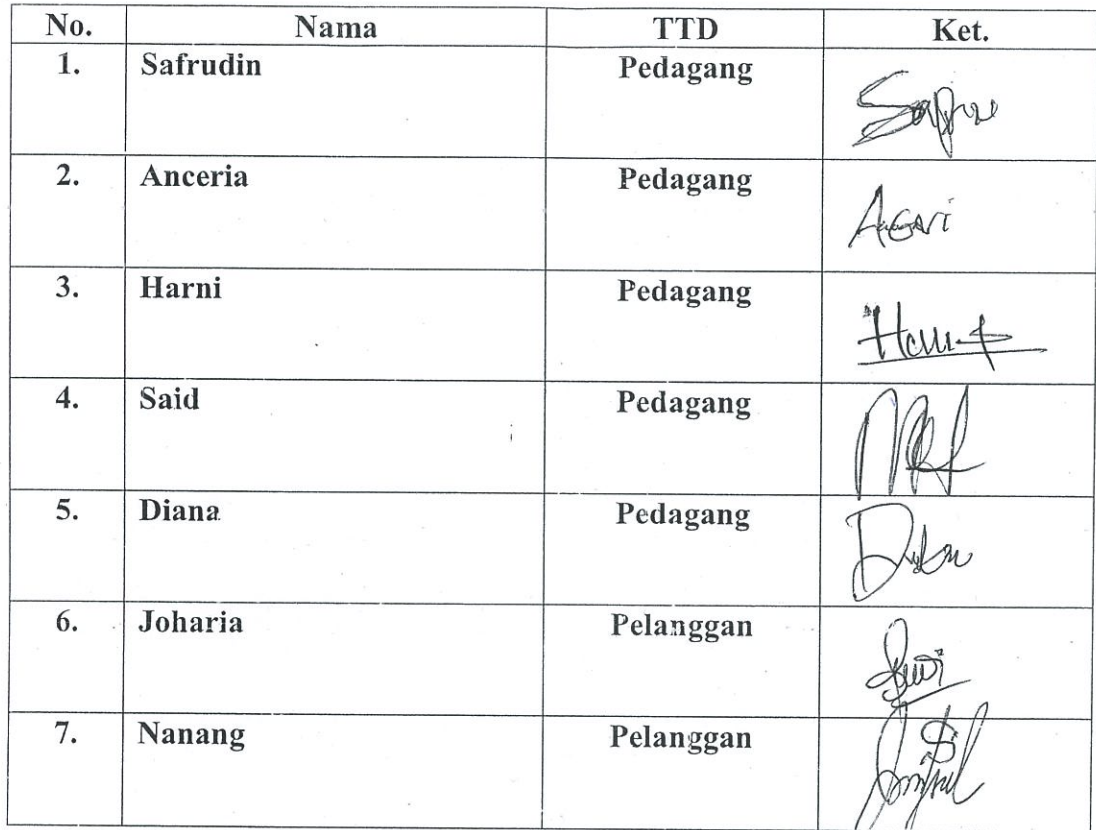 No. Nama TTD Ket.
1. Safrudin Pedagang
2. Anceria Pedagang
3. Harni Pedagang
4. Said Pedagang
5. Diana Pedagang
6. Joharia Pelanggan
7. Nanang Pelanggan